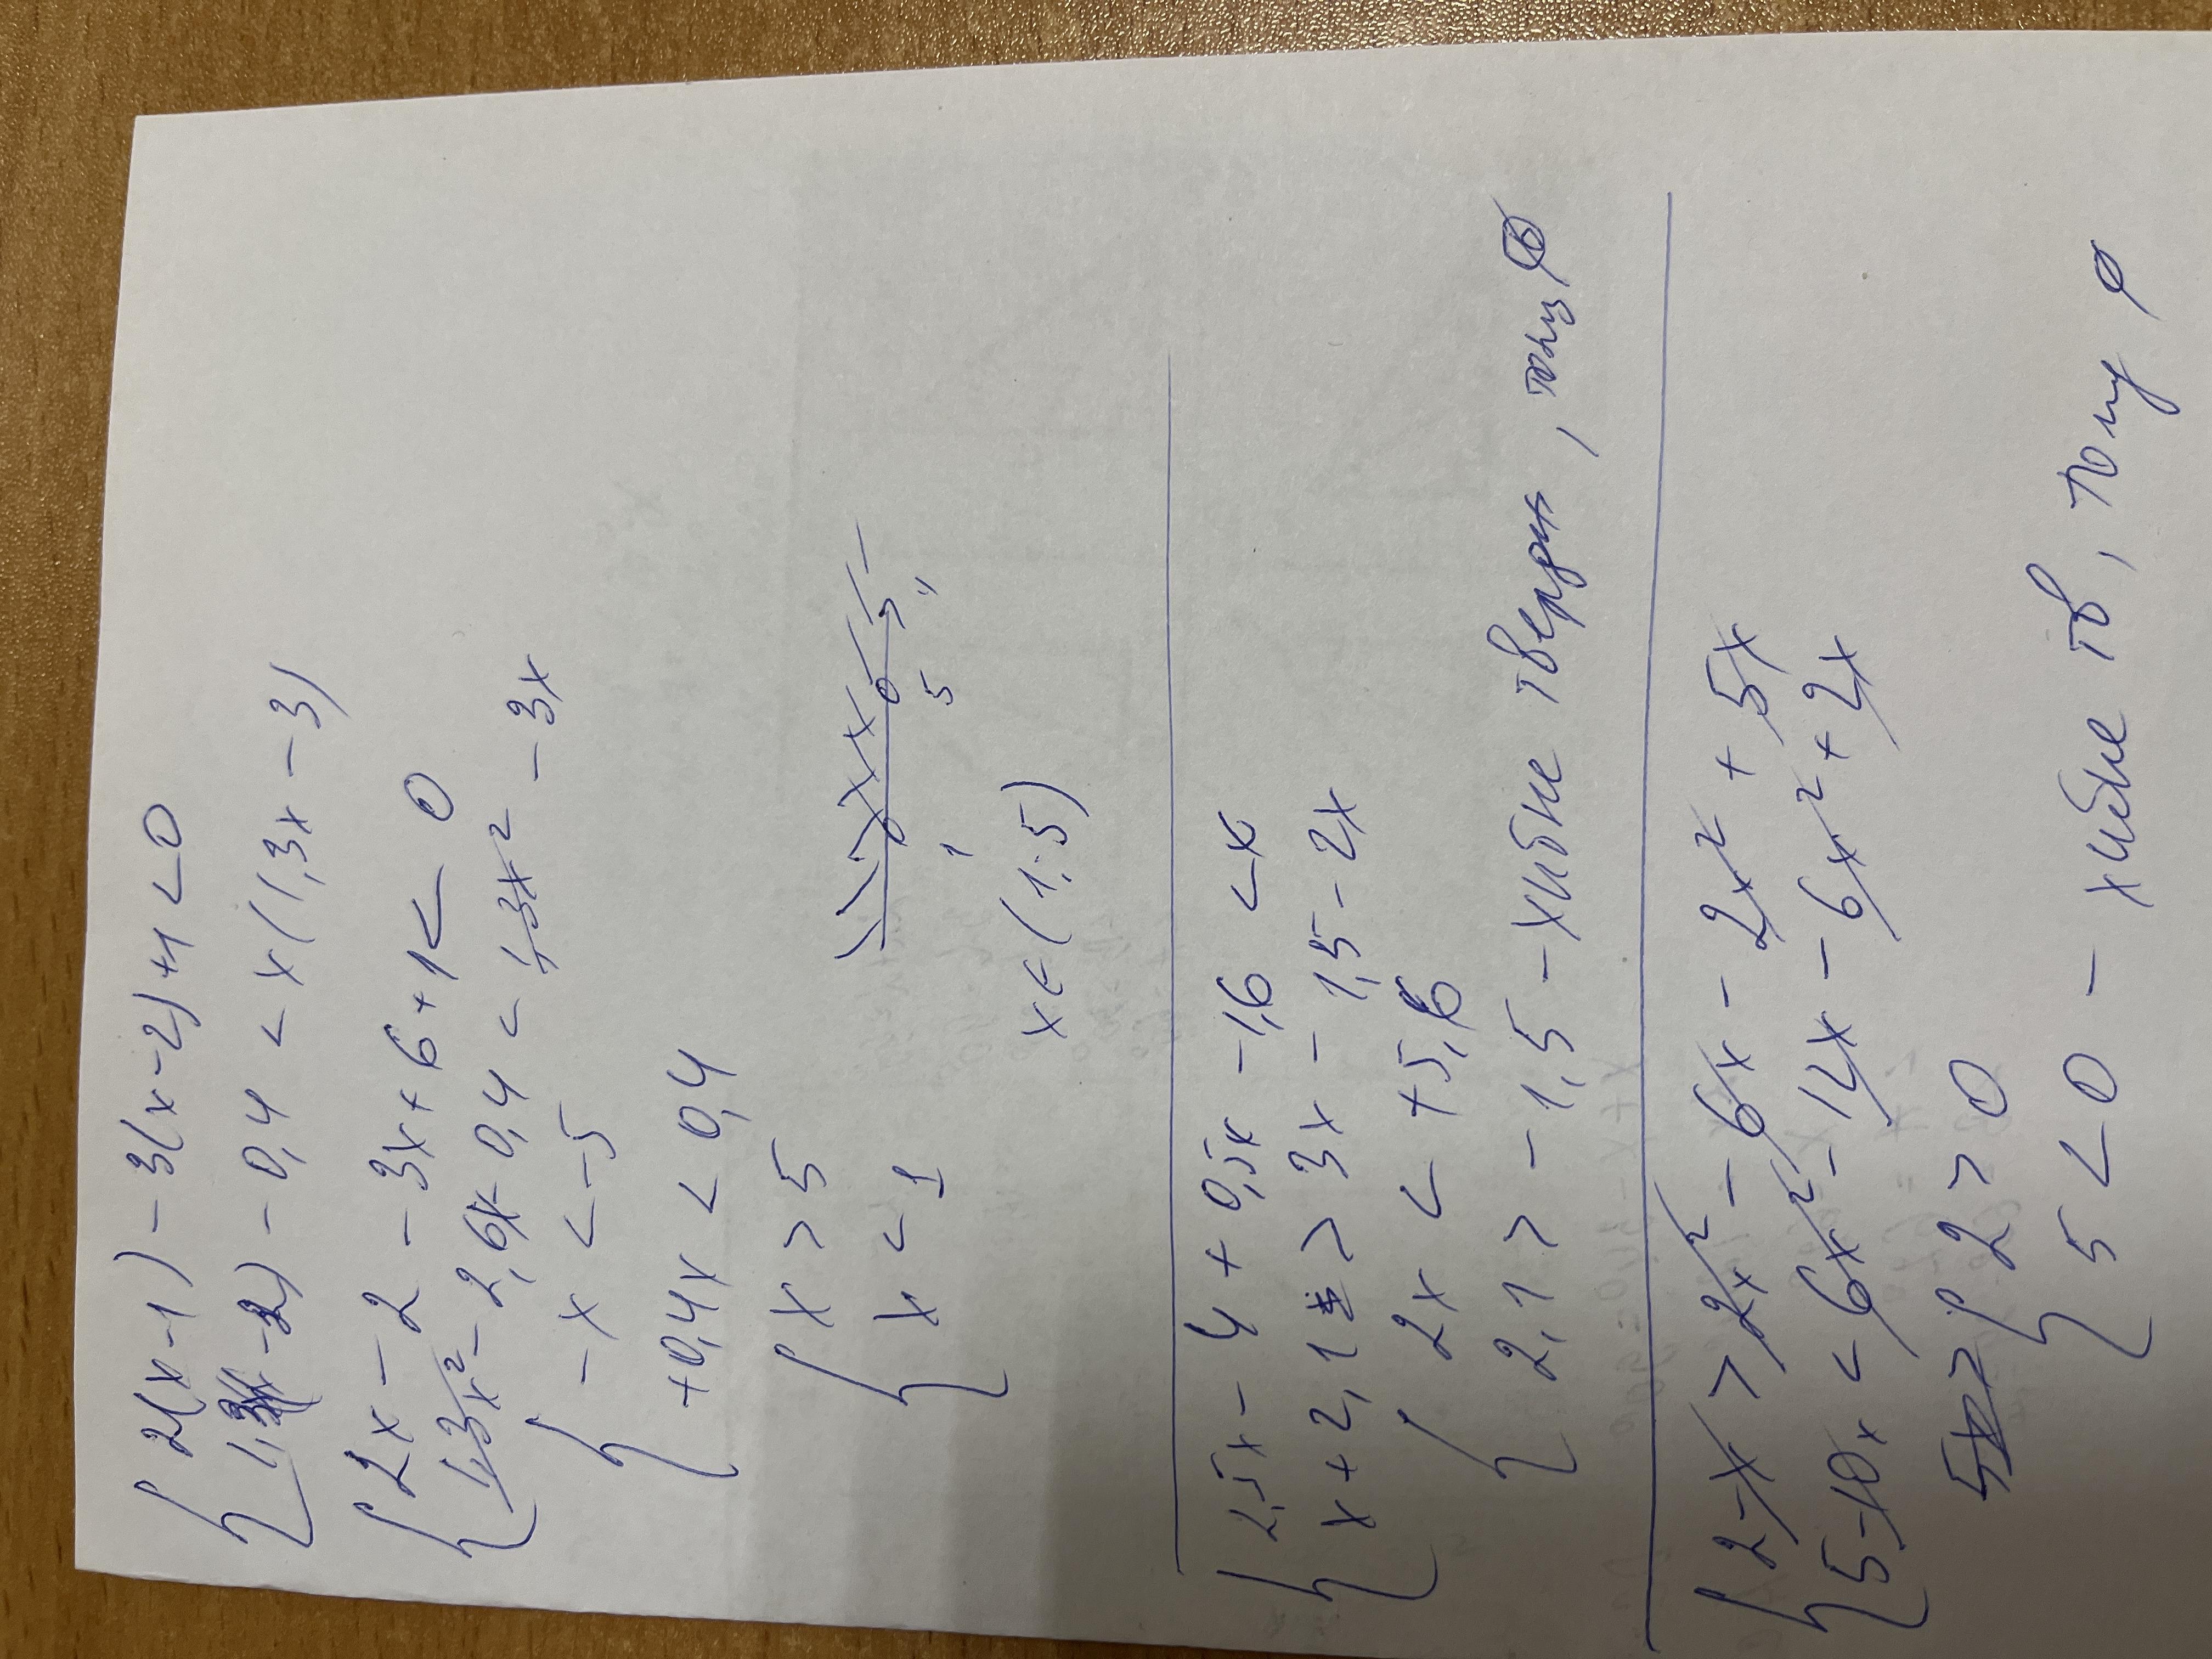 2(x-1) - 3(x-2) + 1 < 0
1,3x(x-2) - 0,4 < x(1,3x - 3)
2x - 2 - 3x + 6 + 1 < 0
1,3x² - 2,6x - 0,4 < 1,3x² - 3x
-x < -5
+0,4x < 0,4
x > 5
x < 1
1 5
x ∈ (1; 5)
2,5x - 4 + 0,5x - 1,6 < x
x + 2,1 > 3x - 1,5 - 2x
2x < + 5,6
2,1 > - 1,5 - хибне тверды, тому ∅
2 - x > 2x² - 6x - 2x² + 5x
5 - 10x < 6x² - 12x - 6x² + 2x
2 > 0
5 < 0 - хибне тв, тому ∅